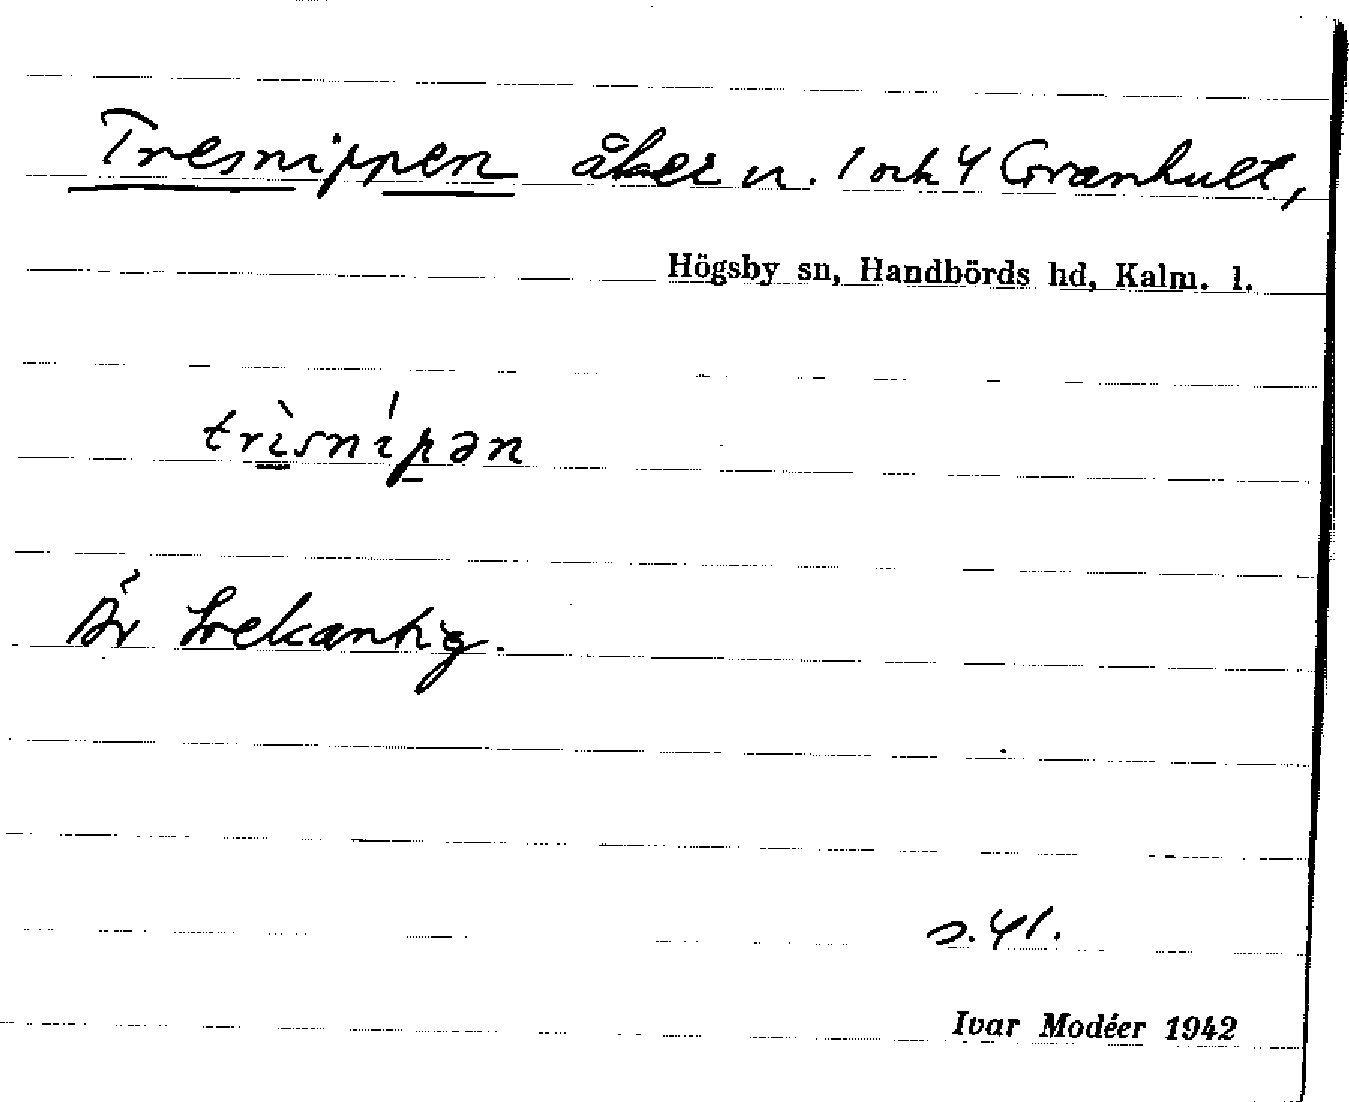 Tresnippen åker n. 1 och 4 Granhult,
Högsby sn, Handbörds hd, Kalm. l.
trìsnípən
Är trekantig.
s. 41.
Ivar Modéer 1942